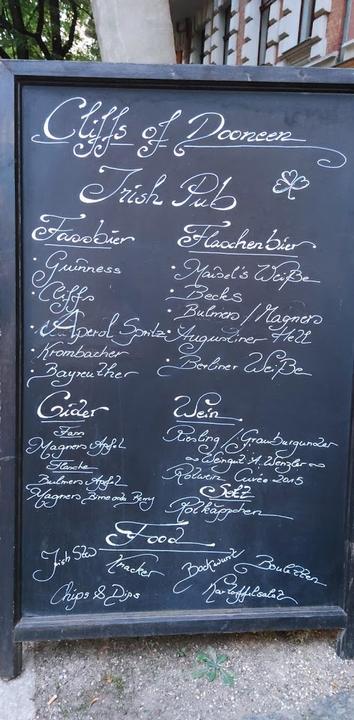 Cliffs of Dooneen
Irish Pub
Fassbier
• Guinness
• Cliffs
• Aperol Spritz
• Krombacher
• Bayreuther
Flaschenbier
• Maisel's Weiße
• Becks
• Bulmers / Magners
• Augustiner Hell
• Berliner Weiße
Cider
Fass
Magners Apfel
Flasche
Bulmers Apfel
Magners Birne oder
Wein
Riesling / Grauburgunder
Weingut A. Wenzler
Rotwein Cuvée 2015
Sekt
Rotkäppchen
Food
Irish Stew
Knacker
Bockwurst
Bouletten
Chips & Dips
Kartoffelsalat